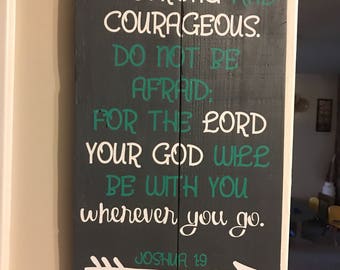 COURAGEOUS.
DO NOT BE
AFRAID;
FOR THE LORD
YOUR GOD WILL
BE WITH YOU
wherever you go.
JOSHUA 1:9